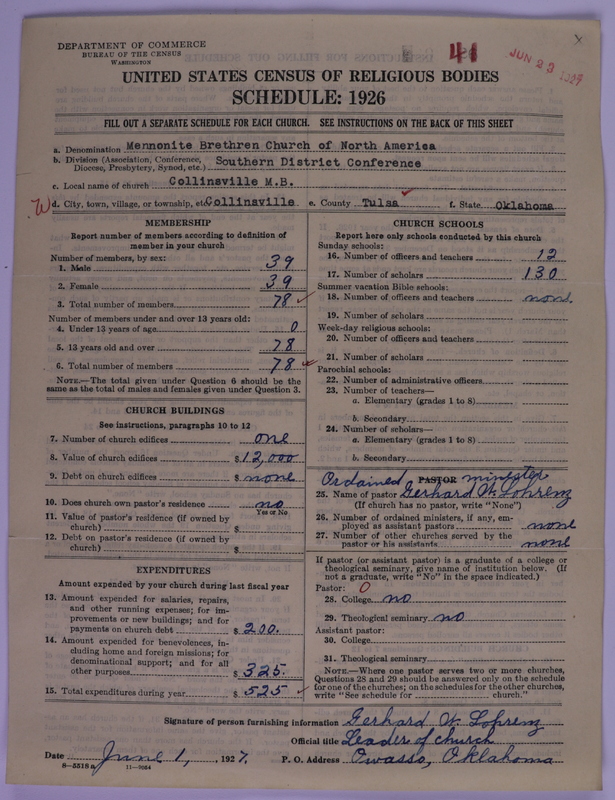 DEPARTMENT OF COMMERCE
BUREAU OF THE CENSUS
WASHINGTON
41
JUN 23 1927
x
UNITED STATES CENSUS OF RELIGIOUS BODIES
SCHEDULE: 1926
FILL OUT A SEPARATE SCHEDULE FOR EACH CHURCH. SEE INSTRUCTIONS ON THE BACK OF THIS SHEET
a. Denomination Mennonite Brethren Church of North America
b. Division (Association, Conference, Diocese, Presbytery, Synod, etc.) Southern District Conference
c. Local name of church Collinsville M.B.
W d. City, town, village, or township, etc. Collinsville e. County Tulsa f. State Oklahoma
MEMBERSHIP
Report number of members according to definition of
member in your church
Number of members, by sex:
1. Male 39
2. Female 39
3. Total number of members 78
Number of members under and over 13 years old:
4. Under 13 years of age 0
5. 13 years old and over 78
6. Total number of members 78
NOTE.—The total given under Question 6 should be the
same as the total of males and females given under Question 3.
CHURCH BUILDINGS
See instructions, paragraphs 10 to 12
7. Number of church edifices one
8. Value of church edifices $ 12,000
9. Debt on church edifices $ none
10. Does church own pastor's residence no
Yes or No
11. Value of pastor's residence (if owned by
church) $
12. Debt on pastor's residence (if owned by
church) $
EXPENDITURES
Amount expended by your church during last fiscal year
13. Amount expended for salaries, repairs,
and other running expenses; for im-
provements or new buildings; and for
payments on church debt $ 200.
14. Amount expended for benevolences, in-
cluding home and foreign missions; for
denominational support; and for all
other purposes $ 325.
15. Total expenditures during year $ 525
CHURCH SCHOOLS
Report here only schools conducted by this church
Sunday schools:
16. Number of officers and teachers 12
17. Number of scholars 130
Summer vacation Bible schools:
18. Number of officers and teachers none.
19. Number of scholars
Week-day religious schools:
20. Number of officers and teachers
21. Number of scholars
Parochial schools:
22. Number of administrative officers
23. Number of teachers—
a. Elementary (grades 1 to 8)
b. Secondary
24. Number of scholars—
a. Elementary (grades 1 to 8)
b. Secondary
Ordained PASTOR minister
25. Name of pastor Gerhard W. Lohrenz
(If church has no pastor, write "None")
26. Number of ordained ministers, if any, em-
ployed as assistant pastors none
27. Number of other churches served by the
pastor or his assistants none
If pastor (or assistant pastor) is a graduate of a college or
theological seminary, give name of institution below. (If
not a graduate, write "No" in the space indicated.)
Pastor: O
28. College no
29. Theological seminary no
Assistant pastor:
30. College
31. Theological seminary
NOTE.—Where one pastor serves two or more churches,
Questions 28 and 29 should be answered only on the schedule
for one of the churches; on the schedules for the other churches,
write "See schedule for church."
Signature of person furnishing information Gerhard W. Lohrenz
Official title Leader of church
Date June 1, 1927. P. O. Address Owasso, Oklahoma
8—5518a 11—9064